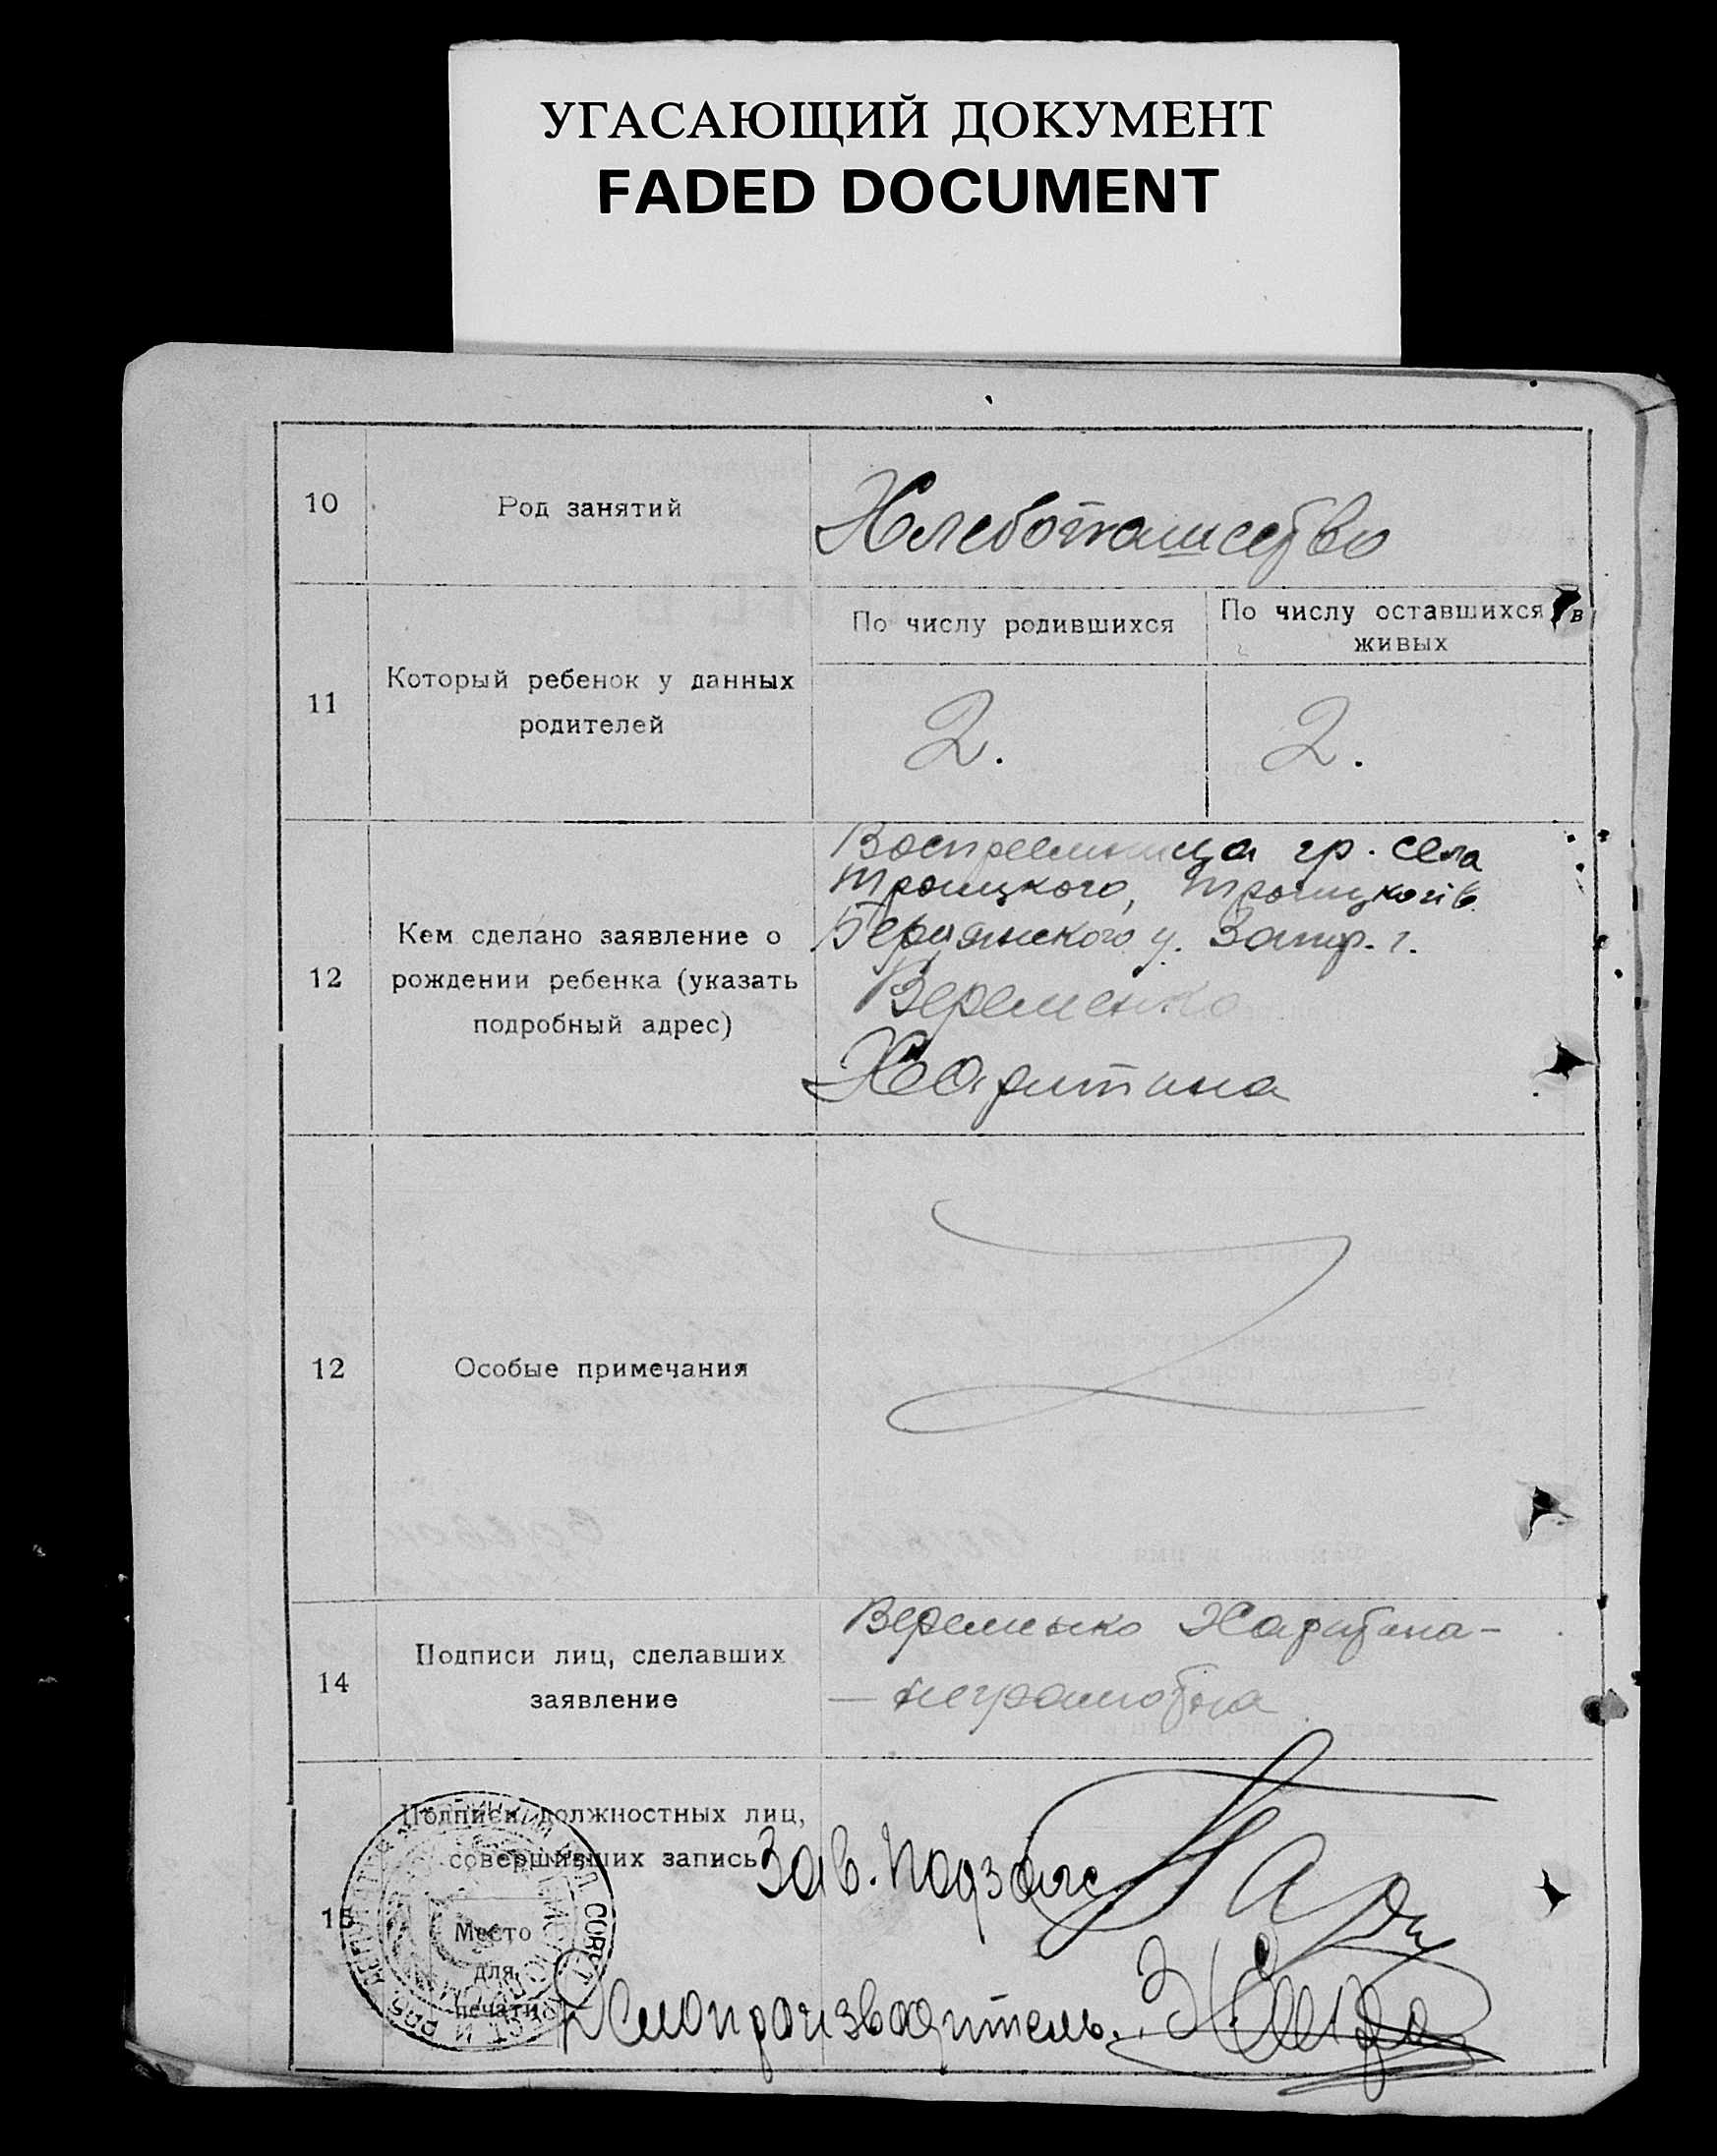 УГАСАЮЩИЙ ДОКУМЕНТ
FADED DOCUMENT
10
Род занятий
Хлебопашество
11
Который ребенок у данных
родителей
По числу родившихся
По числу оставшихся в
живых
2.
2.
12
Кем сделано заявление о
рождении ребенка (указать
подробный адрес)
Восприемница гр. села
Троицкого, Троицкой в.
Бердянского у. Запор. г.
Веременко
Харитина
12
Особые примечания
14
Подписи лиц, сделавших
заявление
Веременко Харитина -
— неграмотна
15
Подписи должностных лиц,
совершивших запись
Место
для
печати
Зав. Подзагс
Делопроизводитель.